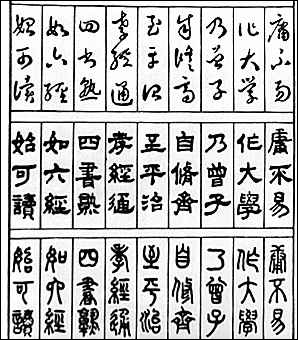 庸不易
作大學
乃曾子
自脩齊
至平治
孝經通
四書熟
如六經
始可讀
庸不易
作大學
乃曾子
自脩齊
至平治
孝經通
四書熟
如六經
始可讀
庸不易
作大學
乃曾子
自脩齊
至平治
孝經通
四書孰
如六經
始可讀